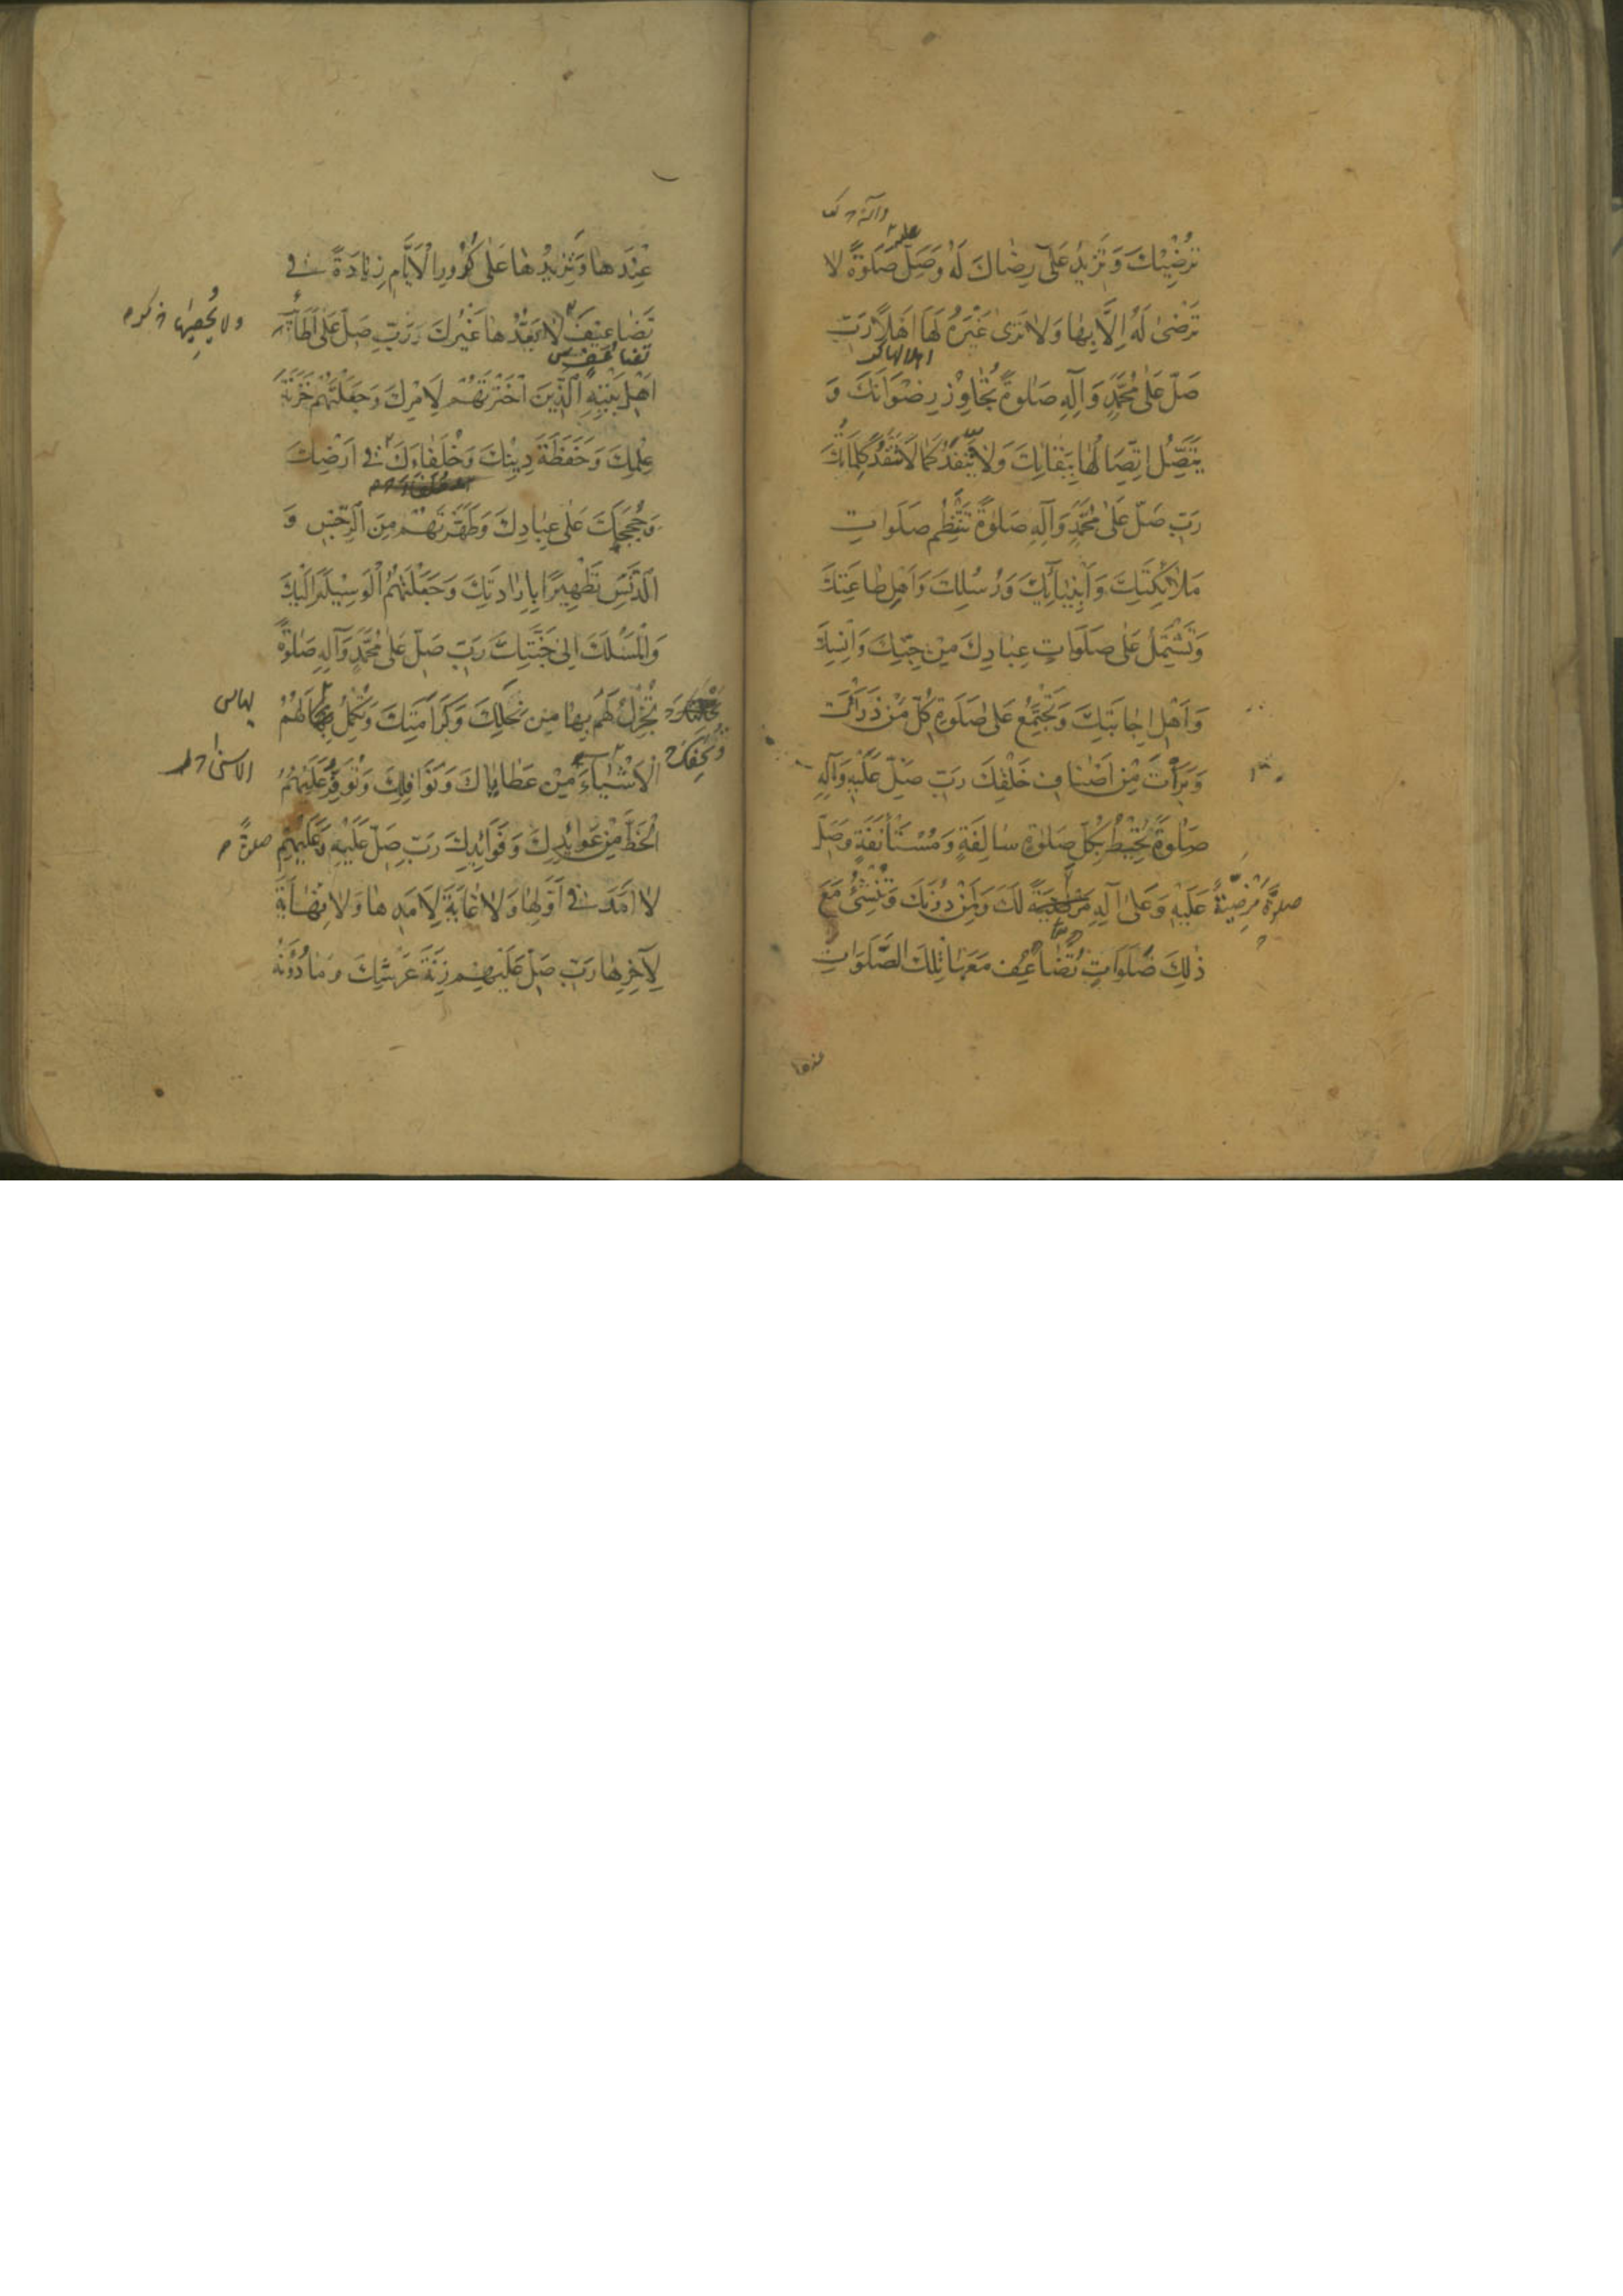 وآله
عليه
تُرْضِيْكَ وَتَزِيدُ عَلَى رِضَاكَ لَهُ وَصَلِّ صَلٰوةً لا
تَرْضىٰ لَهُ اِلَّا بِهَا وَلَا تَرىٰ غَيْرَهُ لَهَا اَهْلًا رَبِّ
صَلِّ عَلٰى مُحَمَّدٍ وَآلِهِ صَلٰوةً تُجَاوِزُ رِضْوَانَكَ وَ
يَتَّصِلُ اتِّصَالُهَا بِبَقَائِكَ وَلَا يَنْفَدُ كَمَا لَا تَنْفَدُ كَلِمَاتُكَ
رَبِّ صَلِّ عَلٰى مُحَمَّدٍ وَآلِهِ صَلٰوةً تَنْتَظِمُ صَلَوَاتِ
مَلَائِكَتِكَ وَاَنْبِيَآئِكَ وَرُسُلِكَ وَاَهْلِ طَاعَتِكَ
وَتَشْتَمِلُ عَلٰى صَلَوَاتِ عِبَادِكَ مِنْ جِنِّكَ وَاِنْسِكَ
وَاَهْلِ اِجَابَتِكَ وَتَجْتَمِعُ عَلٰى صَلٰوةِ كُلِّ مَنْ ذَرَأْتَ
وَبَرَأْتَ مِنْ اَصْنَافِ خَلْقِكَ رَبِّ صَلِّ عَلَيْهِ وَآلِهِ
صَلٰوةً تُحِيْطُ بِكُلِّ صَلٰوةٍ سَالِفَةٍ وَمُسْتَأْنَفَةٍ وَصَلِّ
عَلَيْهِ وَعَلٰى آلِهِ مَرْضِيَّةً لَكَ وَلِمَنْ دُوْنَكَ وَتُنْشِئُ مَعَ
صلوةً مَرْضِيَّةً
ذٰلِكَ صَلَوَاتٍ تُضَاعِفُ مَعَهَا تِلْكَ الصَّلَوَاتِ
عندها
عِنْدَهَا وَتَزِيْدُهَا عَلٰى كُرُوْرِ الْاَيَّامِ زِيَادَةً فِي
تَضَاعِيْفَ لَا يَعُدُّهَا غَيْرُكَ رَبِّ صَلِّ عَلٰى اَطَائِبِ
ولا يُحصِيها
تضاعف
اَهْلِ بَيْتِهِ الَّذِيْنَ اخْتَرْتَهُمْ لِاَمْرِكَ وَجَعَلْتَهُمْ خَزَنَةَ
عِلْمِكَ وَحَفَظَةَ دِيْنِكَ وَخُلَفَاءَكَ فِي اَرْضِكَ
وَحُجَجَكَ عَلٰى عِبَادِكَ وَطَهَّرْتَهُمْ مِنَ الرِّجْسِ وَ
الدَّنَسِ تَطْهِيرًا بِاِرَادَتِكَ وَجَعَلْتَهُمُ الْوَسِيْلَةَ اِلَيْكَ
وَالْمَسْلَكَ اِلٰى جَنَّتِكَ رَبِّ صَلِّ عَلٰى مُحَمَّدٍ وَآلِهِ صَلٰوةً
تُجْزِلُ لَهُمْ بِهَا مِنْ نِحَلِكَ وَكَرَامَتِكَ وَتُكْمِلُ بِهَا لَهُمُ
الْاَشْيَاءَ مِنْ عَطَايَاكَ وَنَوَافِلِكَ وَتُوَفِّرُ عَلَيْهِمُ
الْحَظَّ مِنْ عَوَائِدِكَ وَفَوَائِدِكَ رَبِّ صَلِّ عَلَيْهِ وَعَلَيْهِمْ صلوةً
لَا اَمَدَ فِي اَوَّلِهَا وَلَا غَايَةَ لِاَمَدِهَا وَلَا نِهَايَةَ
لِآخِرِهَا رَبِّ صَلِّ عَلَيْهِمْ زِنَةَ عَرْشِكَ وَمَا دُوْنَهُ